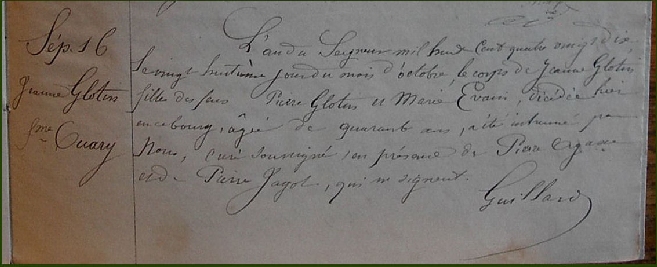 Sép. 16
Jeanne Glotin
fme Ouary
L'an du Seigneur mil huit cent quatre vingt dix,
le vingt huitième jour du mois d'octobre, le corps de Jeanne Glotin
fille des feus Pierre Glotin et Marie Evain, décédée hier
en ce bourg, âgée de quarante ans, a été inhumé par
Nous, curé soussigné en présence de Pierre
et de Pierre Jagot, qui ne signent.
Guillard